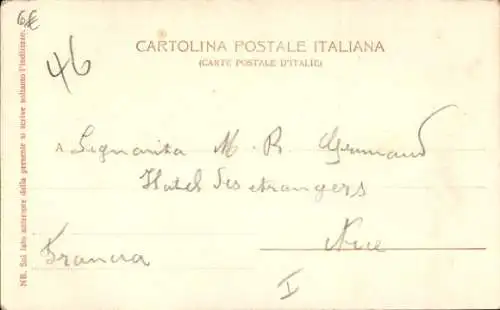 6€
46
CARTOLINA POSTALE ITALIANA
(CARTE POSTALE D'ITALIE)
NB. Sul lato anteriore della presente si scrive soltanto l'indirizzo.
A Signorita M. R.
Hotel des etrangers
Nice
Francia
I